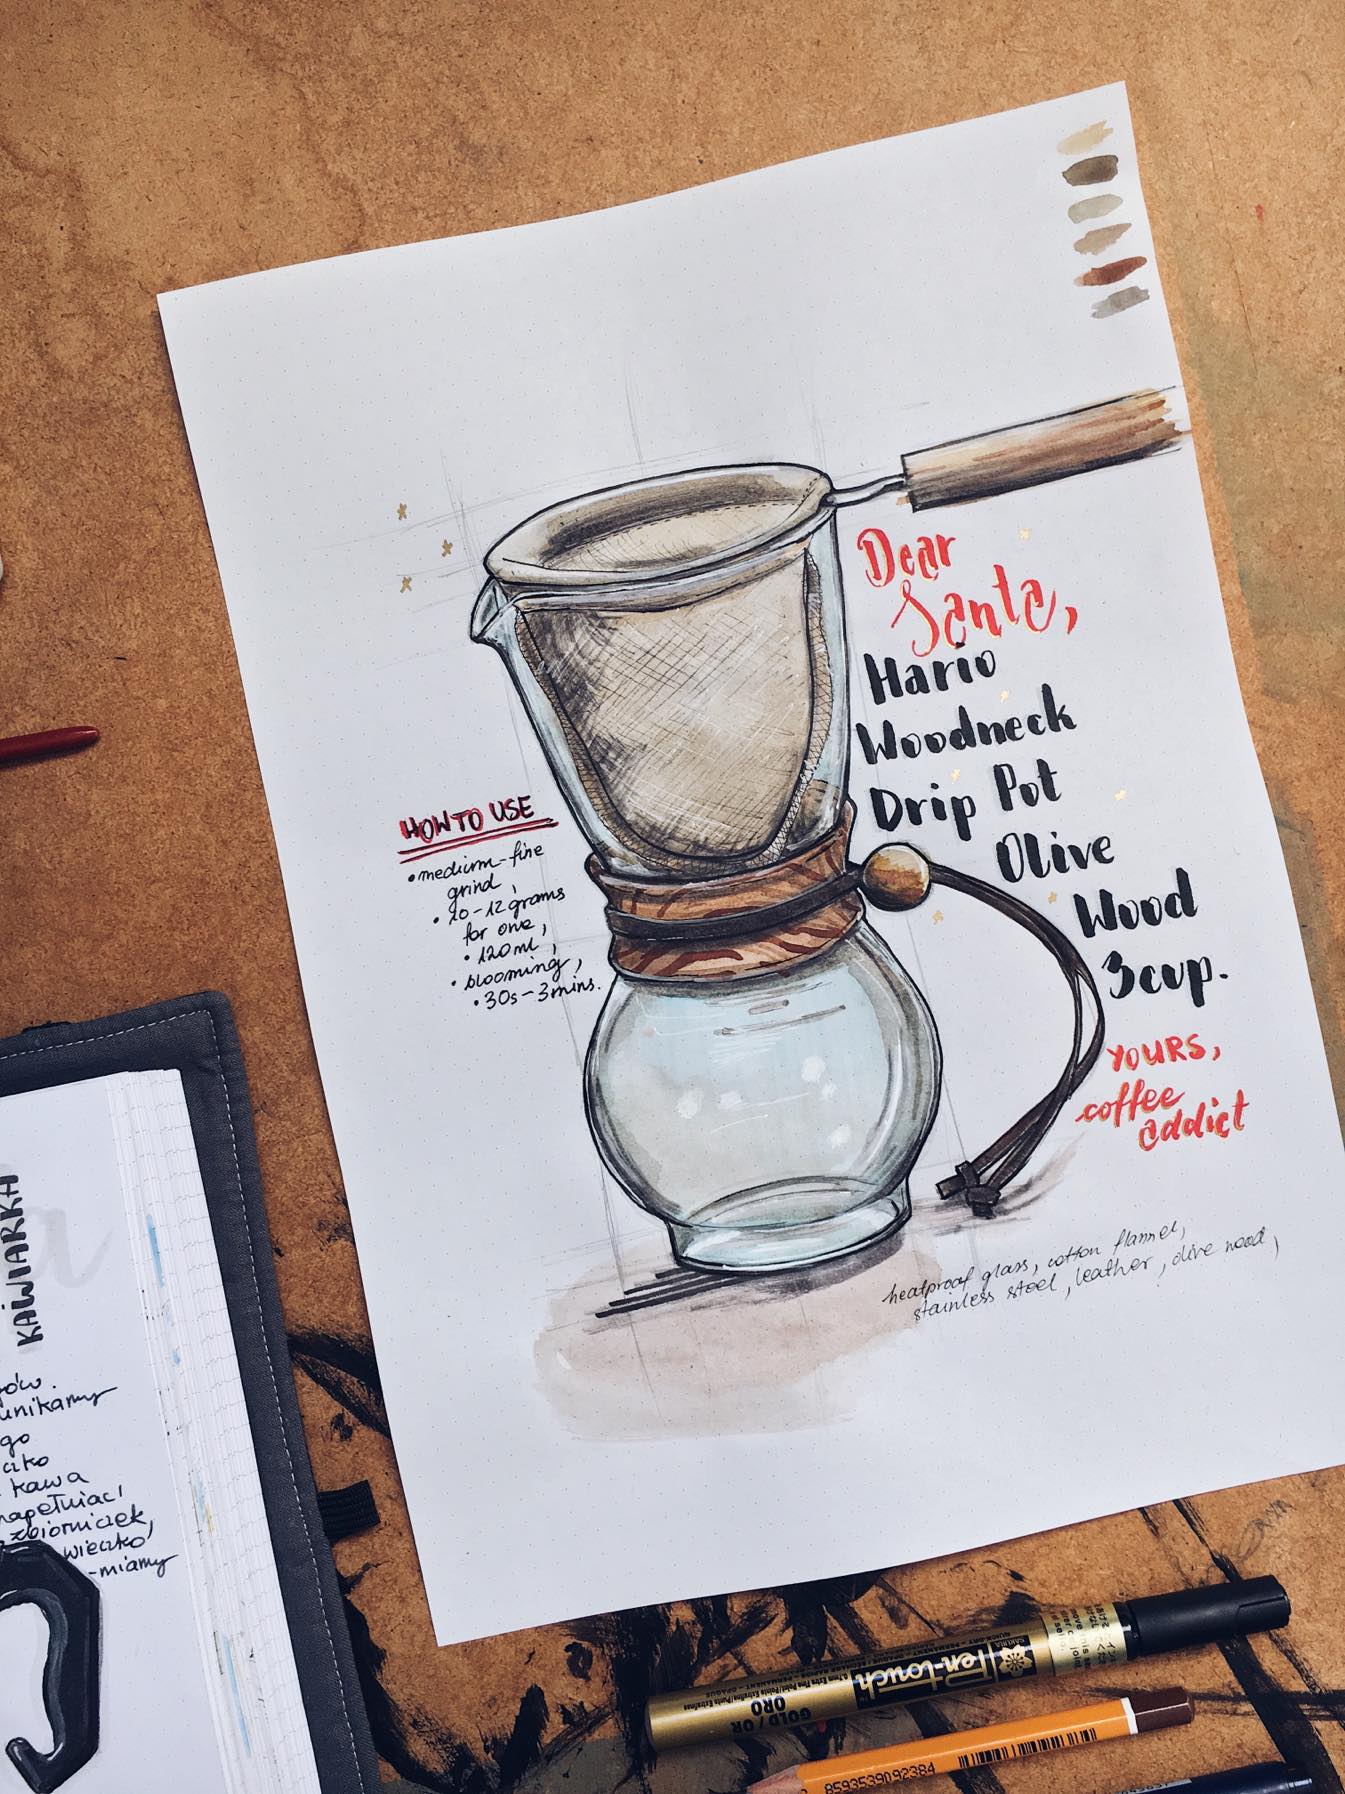 Dear
Santa,
Hario
Woodneck
Drip Pot
Olive
Wood
3cup.
YOURS,
coffee
addict
HOW TO USE
• medium-fine
grind,
• 10-12 grams
for one,
• 120ml,
• blooming,
• 30s-3mins.
heatproof glass, cotton flannel,
stainless steel, leather, olive wood,
KAWIARKA
unikamy
go
kawa
zbiorniczek,
wieczko
-miamy
Pen-touch
SAKURA
GOLD / OR
ORO
8593539092384